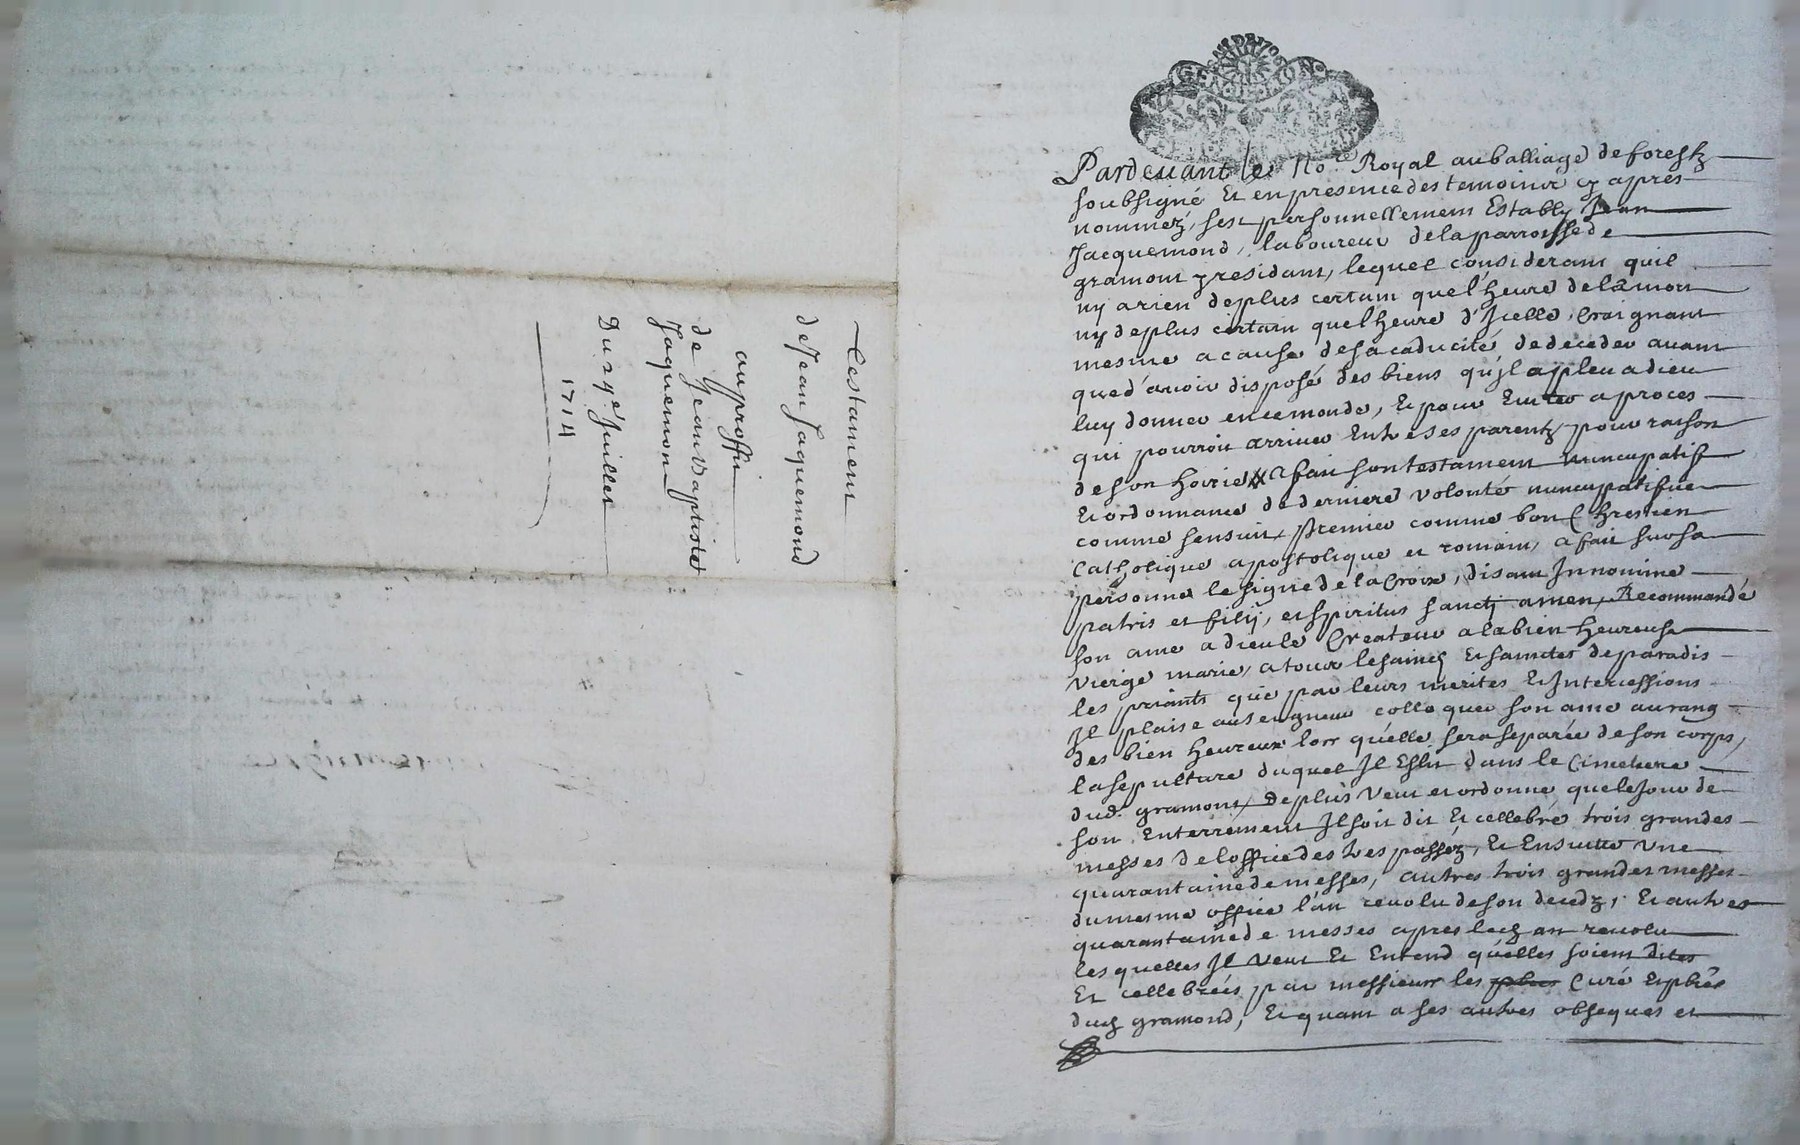 Testament
de Jean Jaquemond
au proffit
de Jean Baptiste
Jaquemon
Du 29e Juillet
1714
GENE
Pardevant le No.re Royal au balliage de forestz
soubsigné Et en presence des temoinx cy apres
nommez, sest personnellement Estably Jean
Jacquemond, laboureur de la parroisse de
gramont y residant, lequel considerant quil
ny a rien de plus certain que l'heure de la mort
ny de plus certain que l'heure d'Icelle, Craignant
mesme a cause de sa caducité de deceder avant
que d'avoir disposé des biens qu'jl a pleu a dieu
luy donner en ce monde, Et pour Eviter a proces
qui pourroit arriver Entre ses parentz pour raison
de son hoirie a fait son testament nuncupatif
Et ordonnance de derniere volonté nuncupatifve
comme sensuit, premier comme bon Chrestien
Catholique apostolique et romain, a fait sur sa
personne le signe de la Croix, disant In nomine
patris et filij, et spiritus sanctj amen, Recommandé
son ame a dieu le Createur a la bien heureuse
vierge marie, a toux le saincz Et sainctes de paradis
les priants que par leurs merites Et Intercessions
Il plaise au seigneur colloquer son ame au rang
des bien heureux lors qu'elle sera separée de son corps,
la sepulture duquel Il Eslit dans le Cimetiere
dud. gramont, De plus veut et ordonne que le Jour de
son Enterrement Il soit dit Et cellebré trois grandes
messes de l'office des trespassez, Et Ensuitte une
quarantaine de messes, autres trois grandes messes
du mesme office l'an revolu de son decedz, Et autres
quarantaine de messes apres led. an revolu
les quelles Il veut Et Entend qu'elles soient dites
Et cellebrées par messieurs les Curé Et pbres
dud. gramond, Et quant a ses autres obseques et